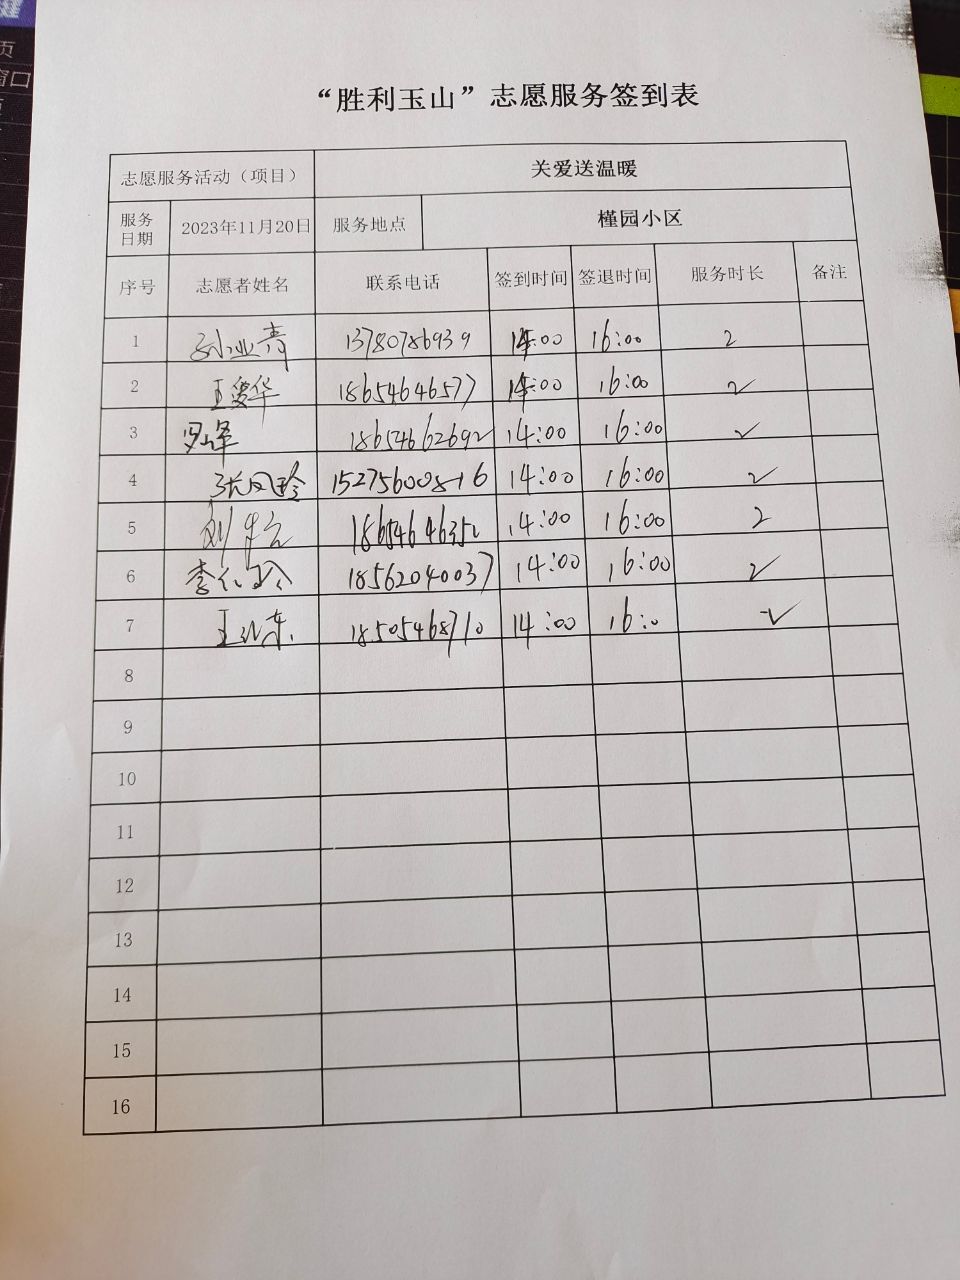 页
窗口
“胜利玉山”志愿服务签到表
志愿服务活动（项目） 关爱送温暖
服务日期 2023年11月20日 服务地点 槿园小区
序号 志愿者姓名 联系电话 签到时间 签退时间 服务时长 备注
1 孙业青 13780786939 14:00 16:00 2
2 王爱华 18654646577 14:00 16:00 2
3 罗峰 18654662692 14:00 16:00 2
4 张凤玲 14:00 16:00 2
5 刘 18654646352 14:00 16:00 2
6 李红玲 18562040037 14:00 16:00 2
7 王 东 18505468710 14:00 16:0 2
8
9
10
11
12
13
14
15
16